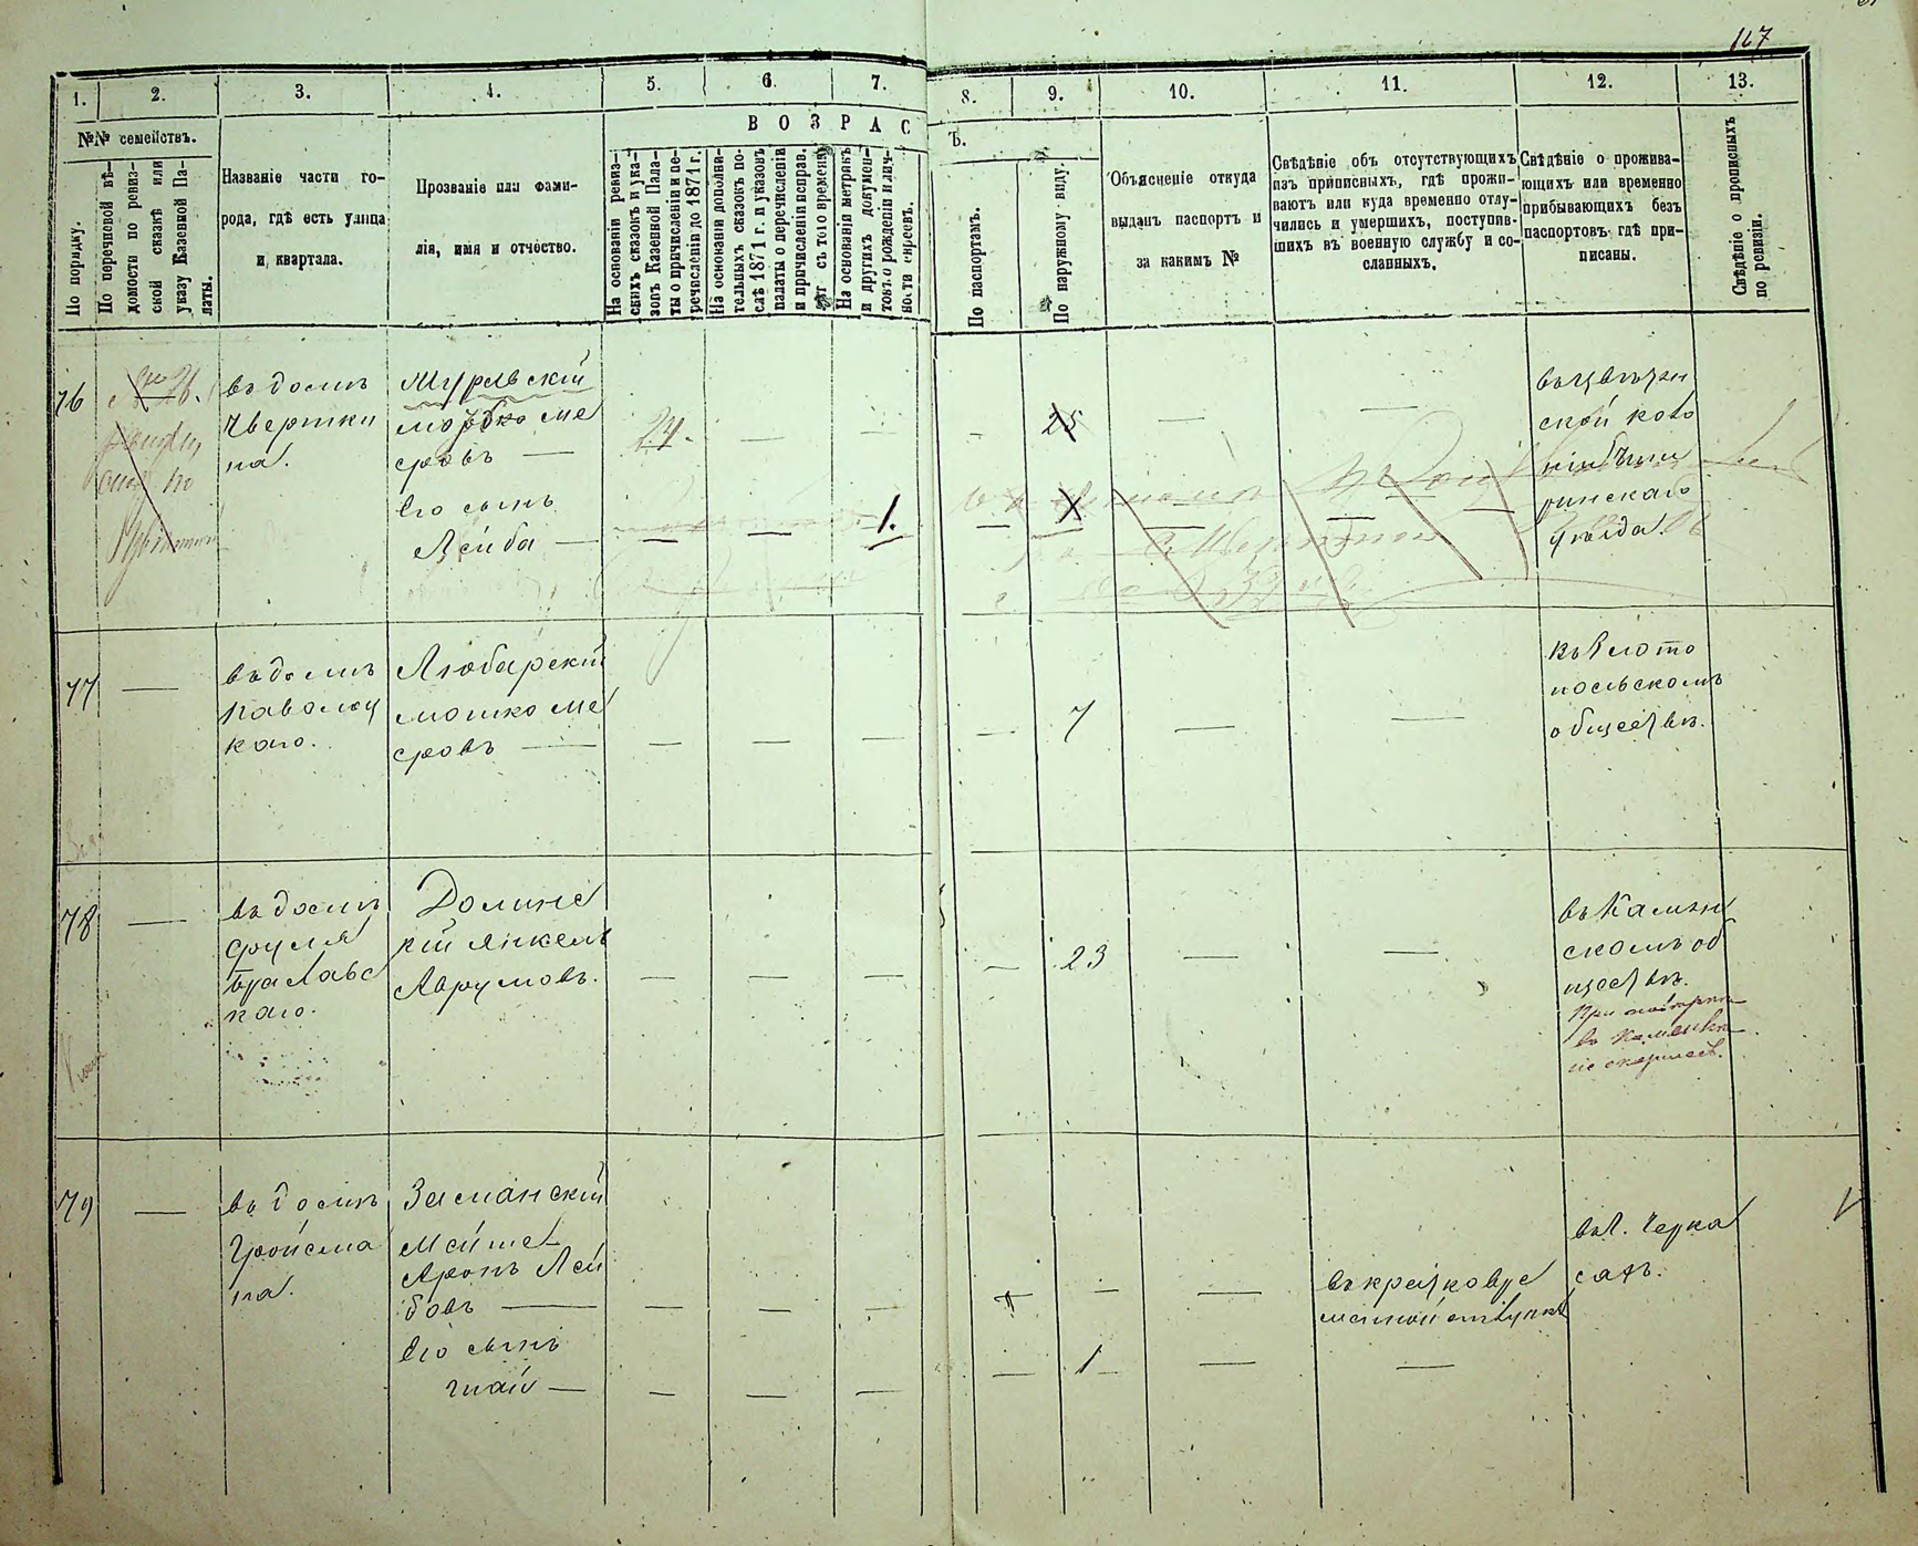 167
1.
2.
3.
4.
5.
6.
7.
8.
9.
10.
11.
12.
13.
№№ семействъ.
По порядку.
По перечневой вѣ-
домости по ревиз-
ской сказкѣ или
указу Казенной Па-
латы.
Названіе части го-
рода, гдѣ есть улица
и квартала.
Прозваніе или фами-
лія, имя и отчество.
ВОЗРАС
Ъ.
На основаніи ревиз-
скихъ сказокъ и ука-
зовъ Казенной Пала-
ты о причисленіи и пе-
речисленіи до 1871 г.
На основаніи дополни-
тельныхъ сказокъ по-
слѣ 1871 г. и указовъ
палаты о перечисленіи
и причисленіи исправ.
лѣт съ того времени
На основаніи метрикъ
и другихъ докумен-
товъ о рожденіи и лич-
ности евреевъ.
По паспортамъ.
По наружному виду.
Объясненіе откуда
выданъ паспортъ и
за какимъ №
Свѣдѣніе объ отсутствующихъ
изъ приписныхъ, гдѣ прожи-
ваютъ или куда временно отлу-
чились и умершихъ, поступив-
шихъ въ военную службу и со-
сланныхъ.
Свѣдѣніе о прожива-
ющихъ или временно
прибывающихъ безъ
паспортовъ гдѣ при-
писаны.
Свѣдѣніе о прописныхъ
по ревизіи.
76
въ домѣ
Чвертки
на.
Муравскій
Мордко Ме
еровъ —
его сынъ
Лейба —
24.
—
—
—
25
—
—
—
—
1.
—
—
—
ской
уѣзда.
77
—
въ домѣ
Паволоц
каго.
Любарскій
Мошко Ме
еровъ —
—
—
—
—
7
—
—
въ Злото
польскомъ
обществѣ.
78
—
въ домѣ
Сруля
Браславс
каго.
Долинс
кій Янкель
Аврумовъ.
—
—
—
—
23
—
—
въ Камен
скомъ об
ществѣ.
79
—
въ домѣ
Гройсма
на.
Засланскій
Мейше
Аронъ Лей
бовъ —
—
—
—
—
—
въ г. Черка
сахъ.
его сынъ
—
—
—
—
1
—
—